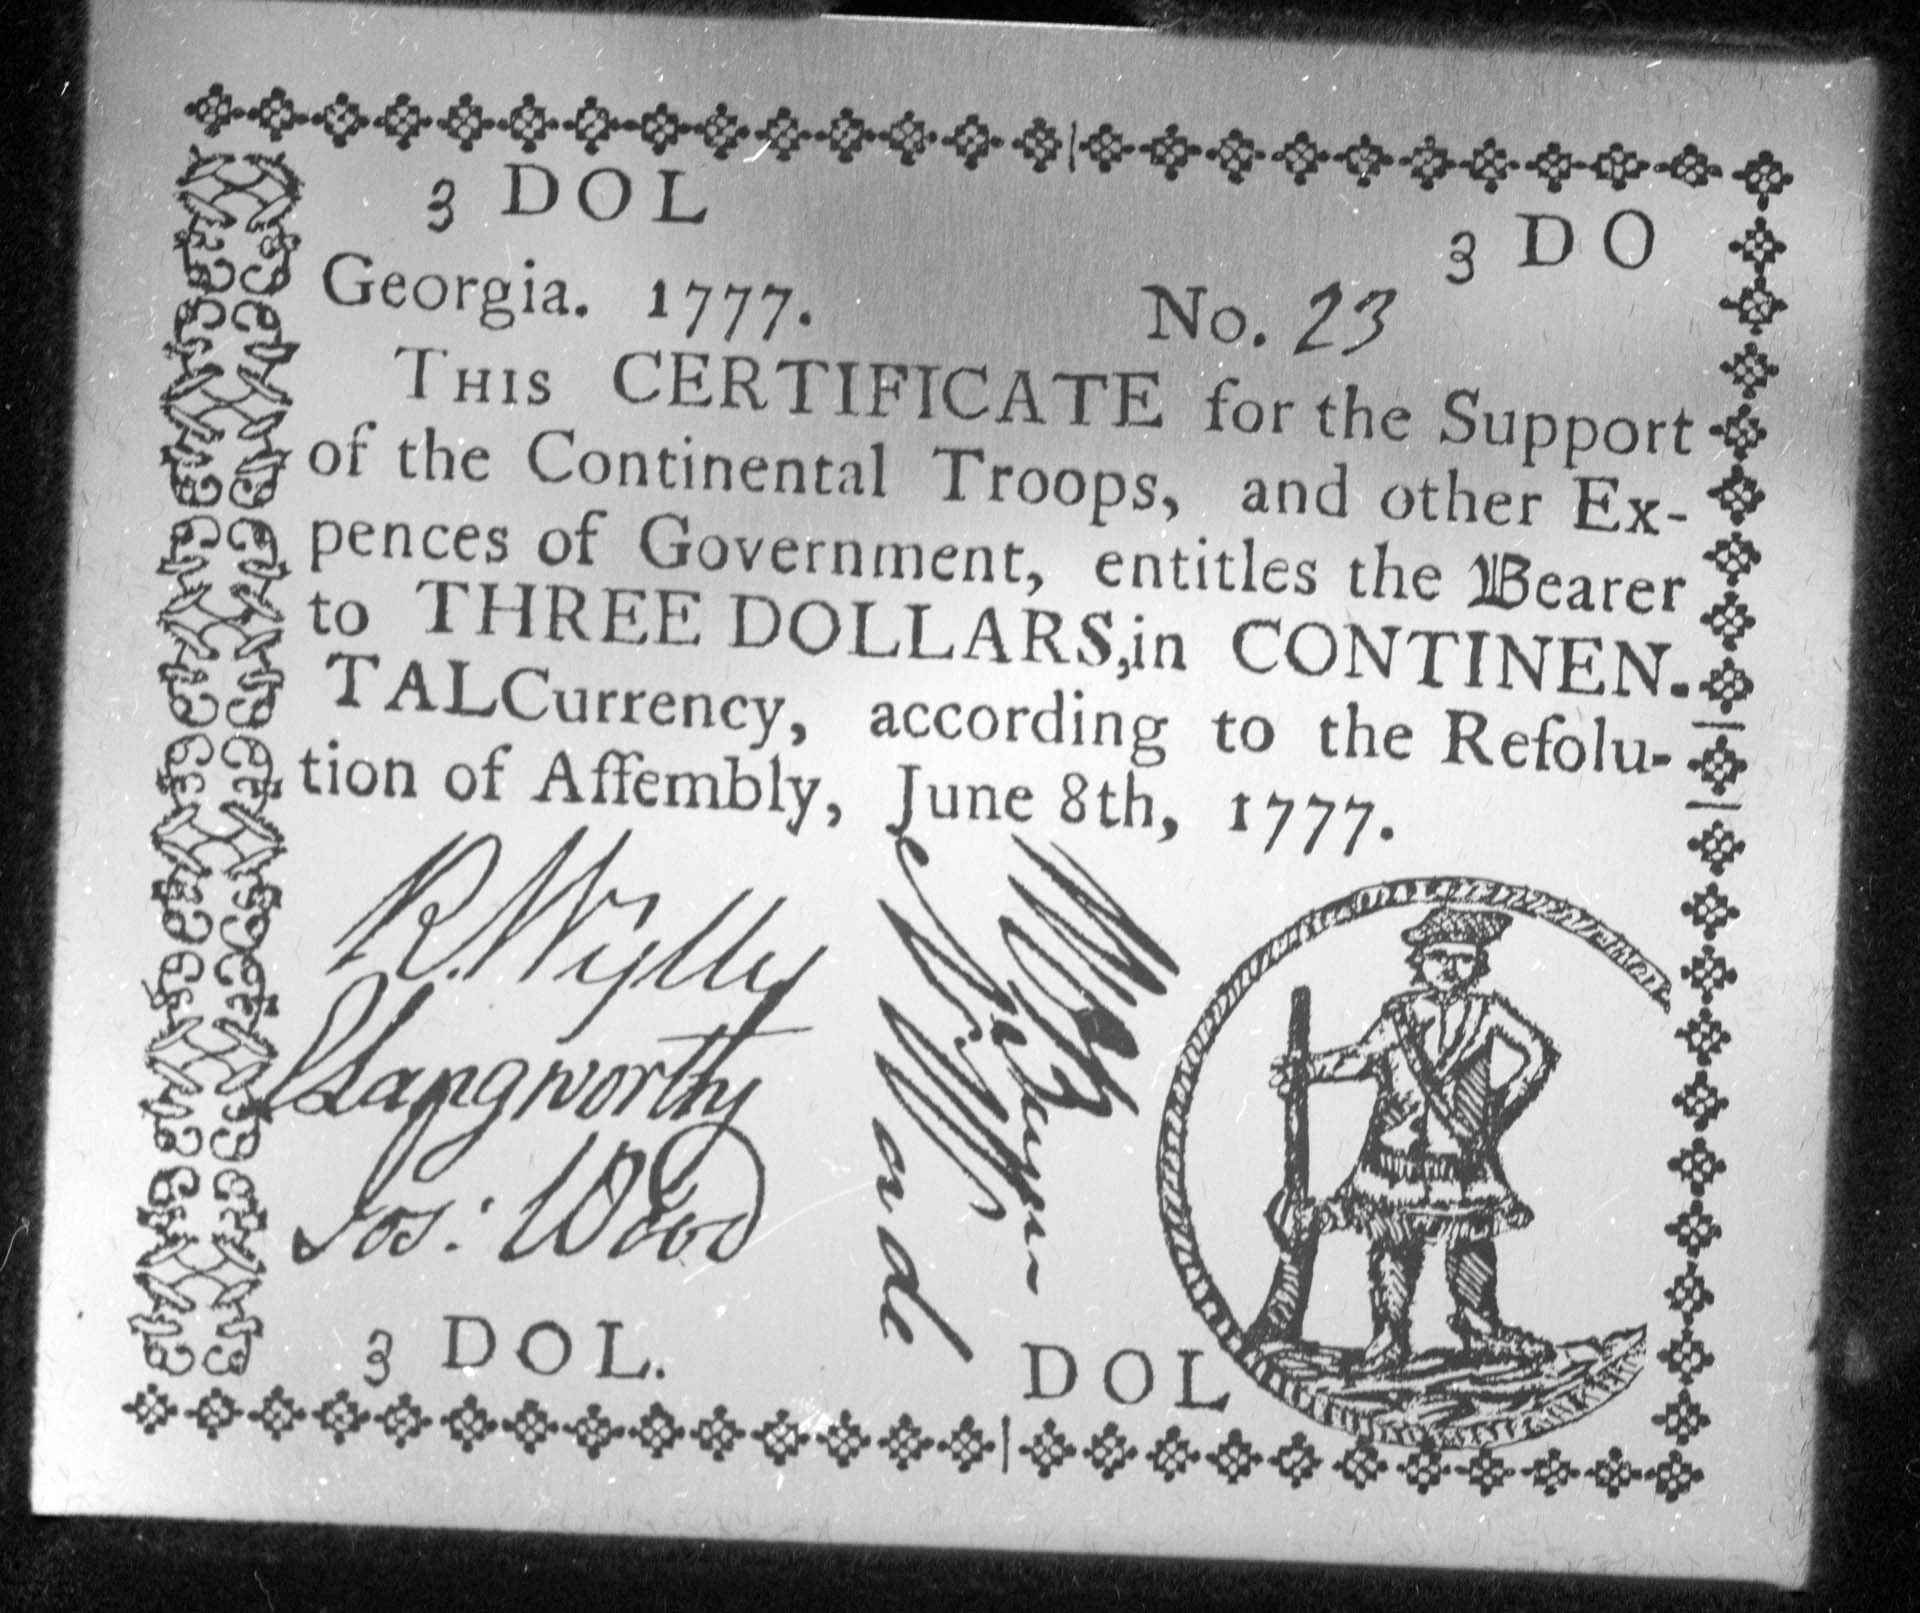 3 DOL
3 DO
Georgia. 1777. No. 23
THIS CERTIFICATE for the Support
of the Continental Troops, and other Ex-
pences of Government, entitles the Bearer
to THREE DOLLARS, in CONTINEN.
TAL Currency, according to the Reſolu-
tion of Aſſembly, June 8th, 1777.
R. Wylly
Langworthy
Jos: Wood
3 DOL.
DOL